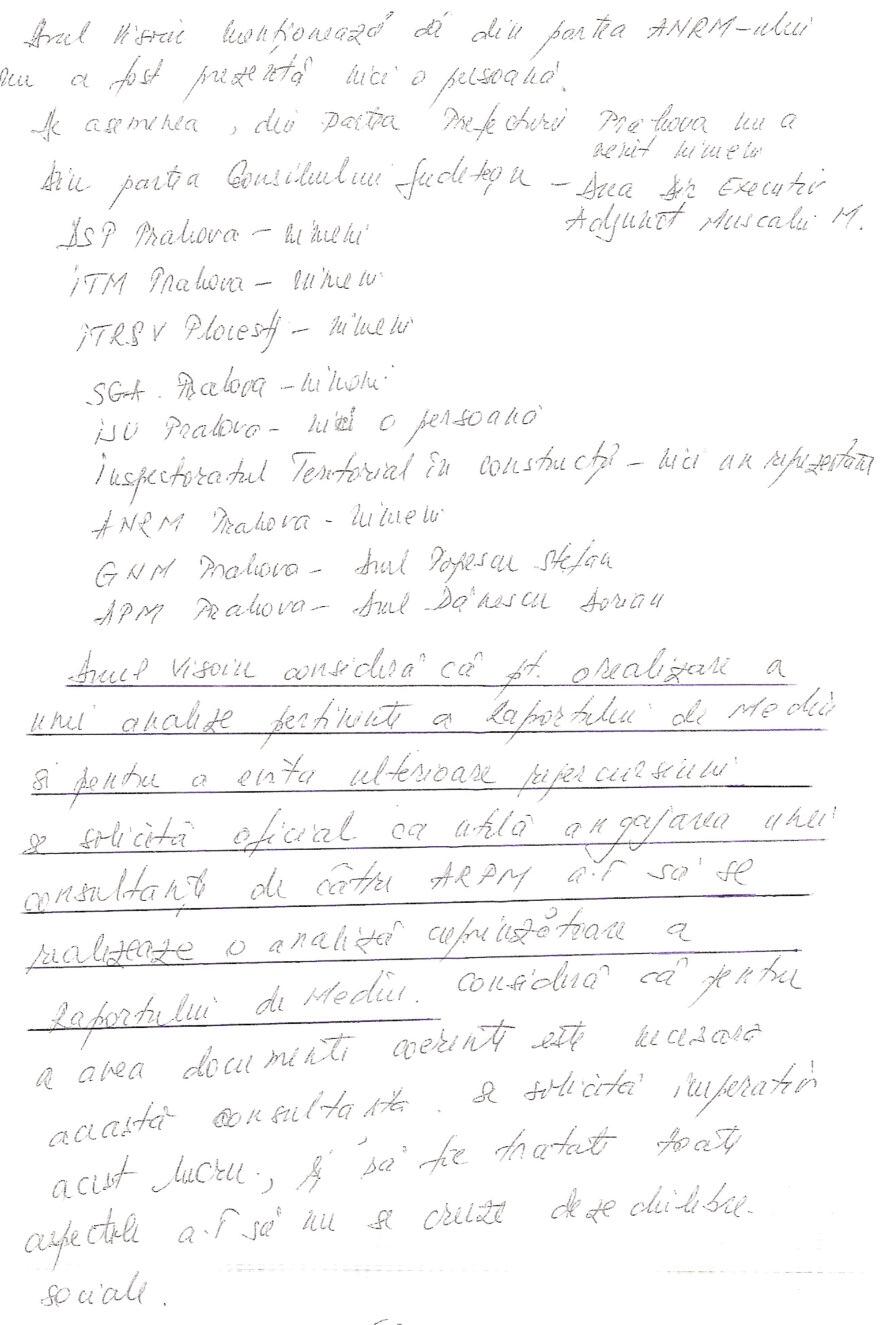 Dnul Visoiu menționează că din partea ANRM-ului
nu a fost prezentă nici o persoană.
De asemenea, din partea Prefecturii Prahova nu a
venit nimeni
Din partea Consiliului Județean – Dna Dir Executiv
Adjunct Muscalu M.
DSP Prahova – nimeni
ITM Prahova – nimeni
ITRSV Ploiești – nimeni
SGA Prahova – nimeni
ISU Prahova – nici o persoană
Inspectoratul Teritorial în construcții – nici un reprezentant
ANRM Prahova – nimeni
GNM Prahova – Dnul Popescu Ștefan
APM Prahova – Dnul Dănescu Dorian
Dnul Visoiu consideră că pt. o realizare a
unei analize pertinente a Raportului de Mediu
și pentru a evita ulterioare repercursiuni
se solicită oficial ca utilă angajarea unei
consultanțe de către ARPM a.î să se
realizeze o analiză cuprinzătoare a
Raportului de Mediu. Consideră că pentru
a avea documente coerente este necesară
această consultanță. Se solicită imperativ
acest lucru, și să fie tratate toate
aspectele a.î să nu se creeze dezechilibre
sociale.